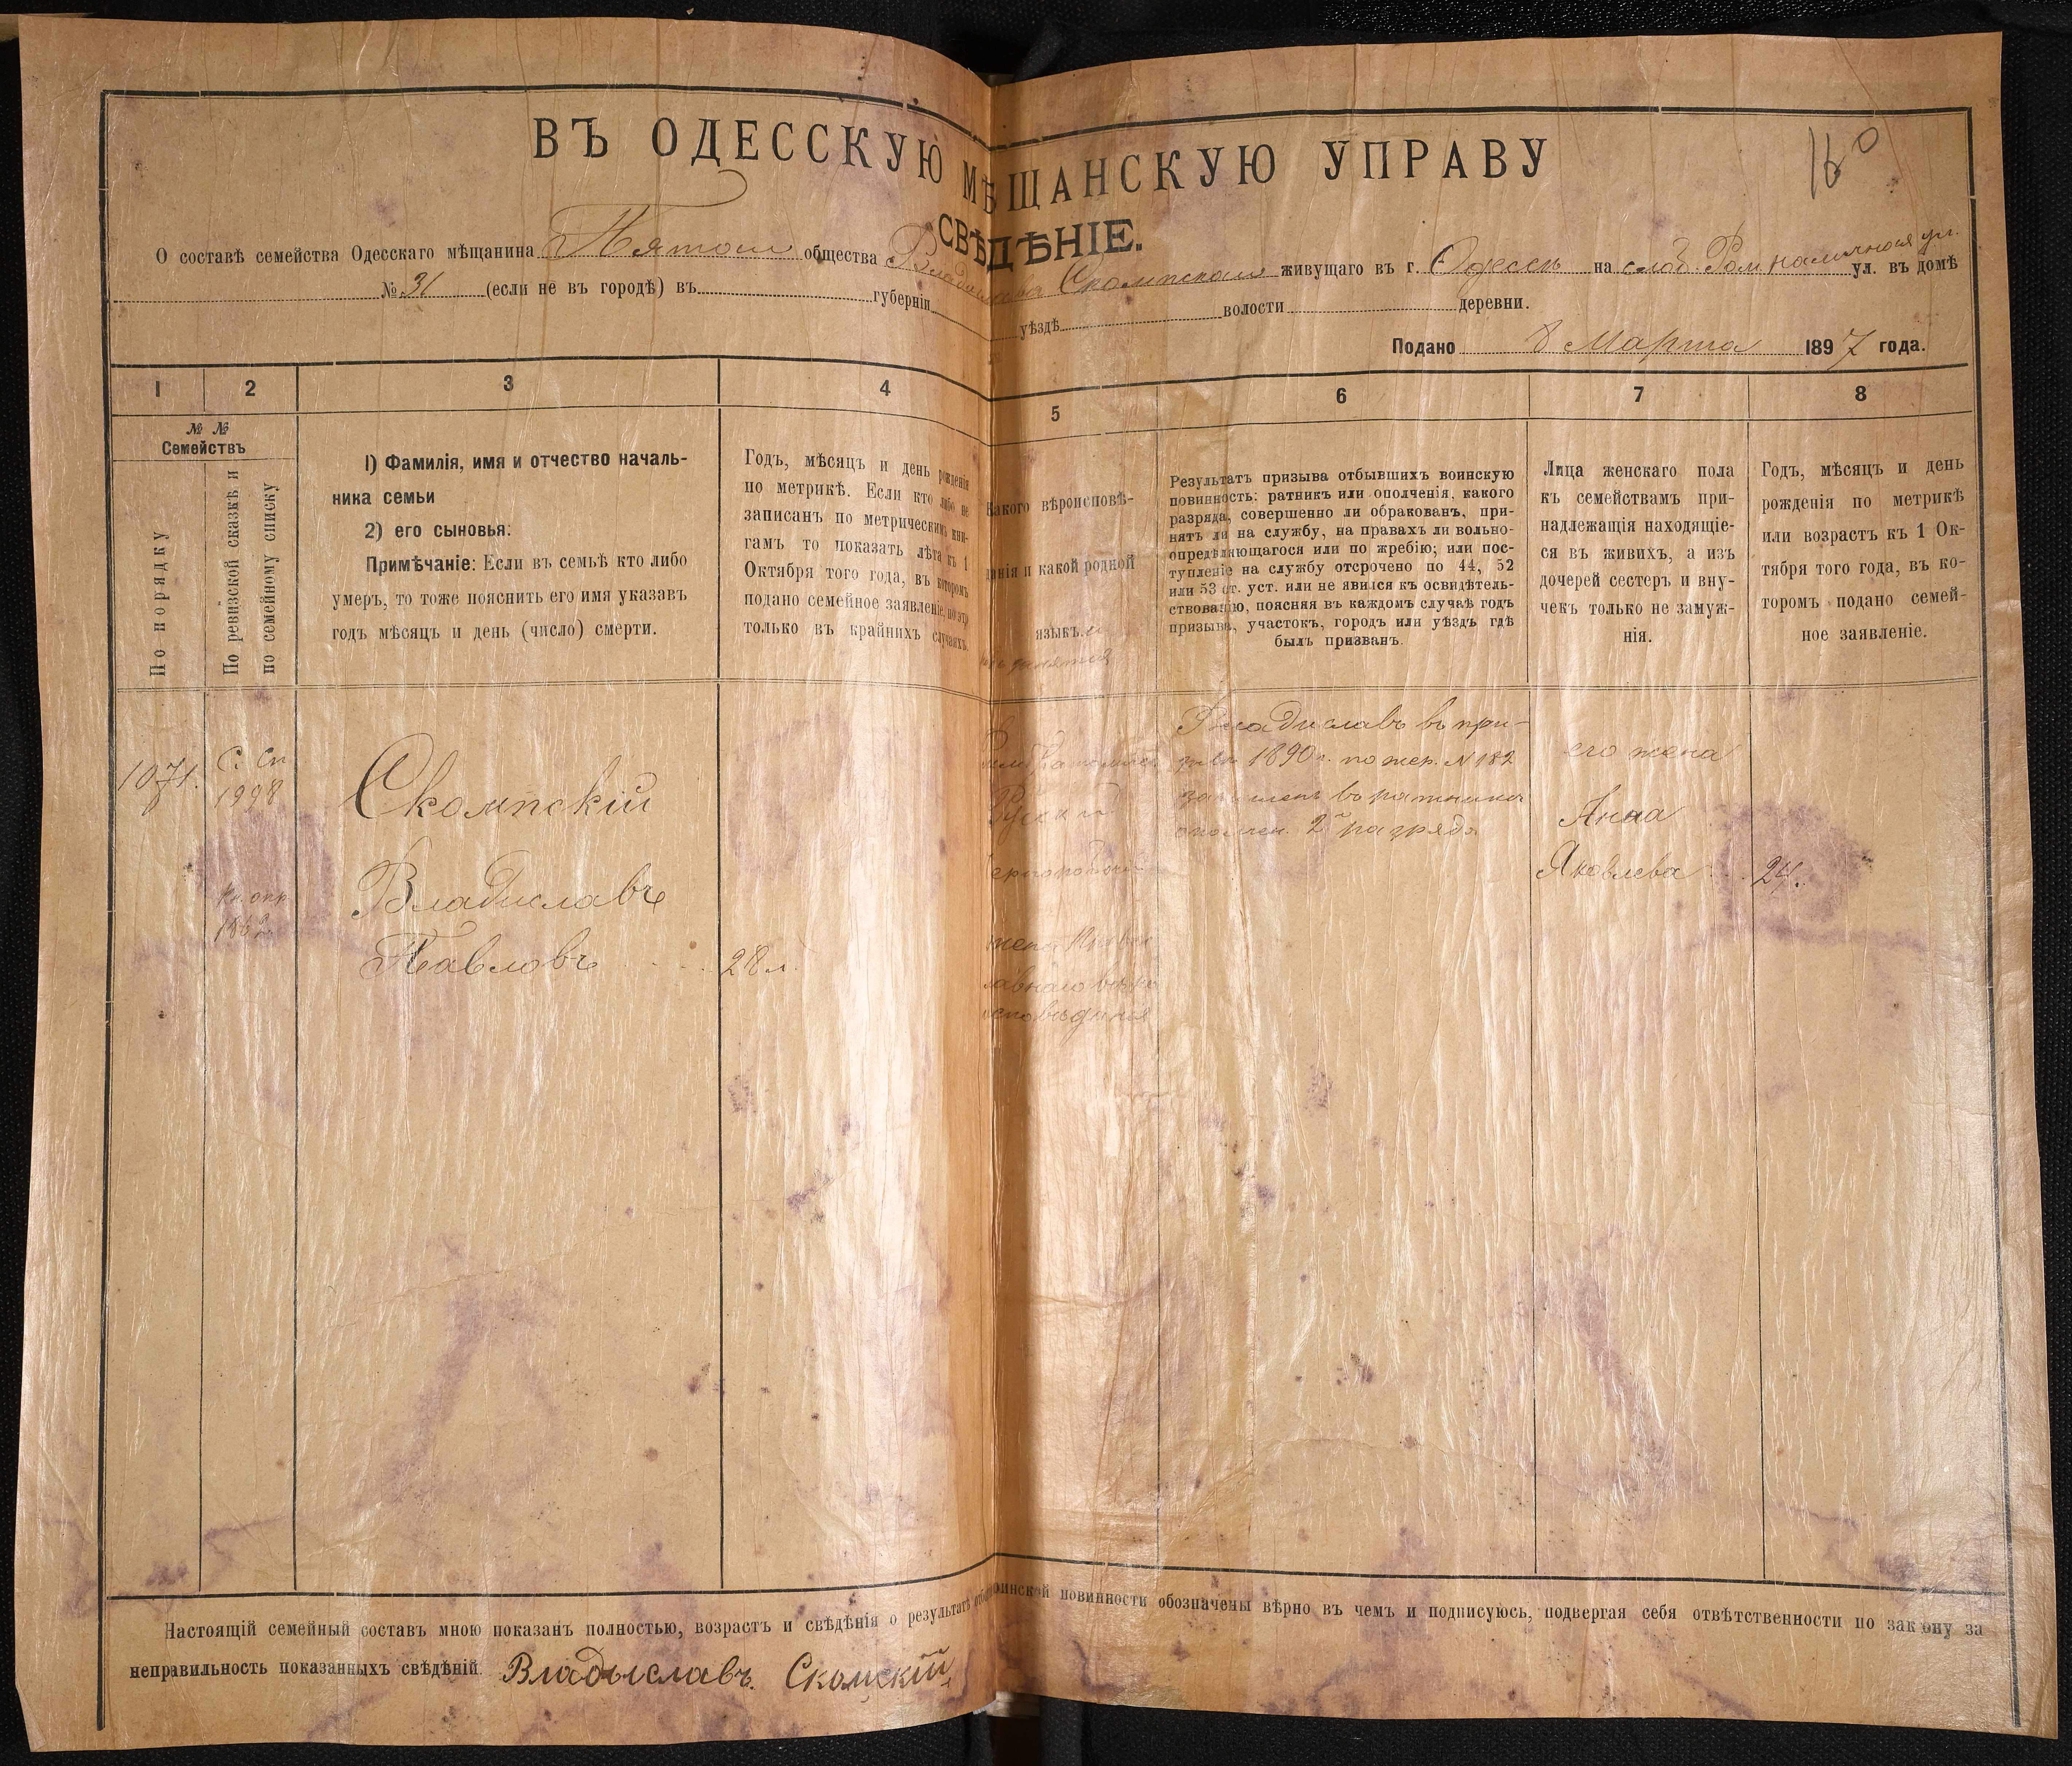 ВЪ ОДЕССКУЮ МѢЩАНСКУЮ УПРАВУ
160
СВѢДѢНІЕ.
О составѣ семейства Одесскаго мѣщанина Пятаго общества Владислава Скомпскаго живущаго въ г. Одессѣ на слоб. ул. въ домѣ
№ 31 (если не въ городѣ) въ губерніи уѣздѣ волости деревни.
Подано 8 Марта 1897 года.
1 2 3 4 5 6 7 8
№ №
Семействъ
По порядку
По ревизской сказкѣ и
по семейному списку
1) Фамилія, имя и отчество началь-
ника семьи
2) его сыновья:
Примѣчаніе: Если въ семьѣ кто либо
умеръ, то тоже пояснить его имя указавъ
годъ мѣсяцъ и день (число) смерти.
Годъ, мѣсяцъ и день рожденія
по метрикѣ. Если кто либо не
записанъ по метрическимъ кни-
гамъ то показать лѣта къ 1
Октября того года, въ которомъ
подано семейное заявленіе, но это
только въ крайнихъ случаяхъ.
Какого вѣроисповѣ-
данія и какой родной
языкъ. и
занятія
Результатъ призыва отбывшихъ воинскую
повинность: ратникъ или ополченія, какого
разряда, совершенно ли обракованъ, при-
нятъ ли на службу, на правахъ ли вольно-
опредѣляющагося или по жребію; или пос-
тупленіе на службу отсрочено по 44, 52
или 53 ст. уст. или не явился къ освидѣтель-
ствованію, поясняя въ каждомъ случаѣ годъ
призыва, участокъ, городъ или уѣздъ гдѣ
былъ призванъ.
Лица женскаго пола
къ семействамъ при-
надлежащія находящіе-
ся въ живихъ, а изъ
дочерей сестеръ и вну-
чекъ только не замуж-
нія.
Годъ, мѣсяцъ и день
рожденія по метрикѣ
или возрастъ къ 1 Ок-
тября того года, въ ко-
торомъ подано семей-
ное заявленіе.
1071.
С. Сп
1998
Скомпскій
Владиславъ
Павловъ 28 л.
Русскій
чернорабочій
жена Право
славнаго вѣро
исповѣданія
Владиславъ въ при-
зывъ 1890 г. по жер. N 182
зачисленъ въ ратники
ополчен. 2 разряда
его жена
Анна
Яковлева 24.
Настоящій семейный составъ мною показанъ полностью, возрастъ и свѣдѣнія о результатѣ воинской повинности обозначены вѣрно въ чемъ и подписуюсь, подвергая себя отвѣтственности по закону за
неправильность показанныхъ свѣдѣній. Владыславъ Скомскій